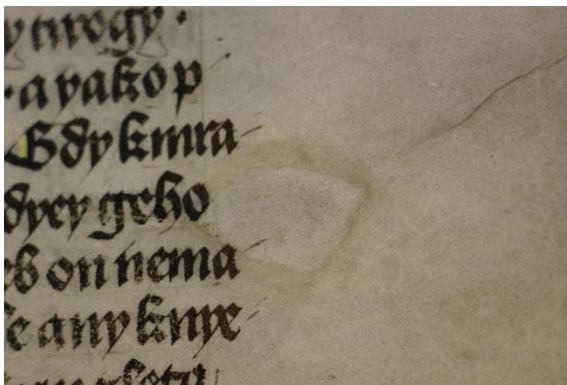 · a yako p
Gdy kmra-
dyey geho
eb on nema-
e any knye-